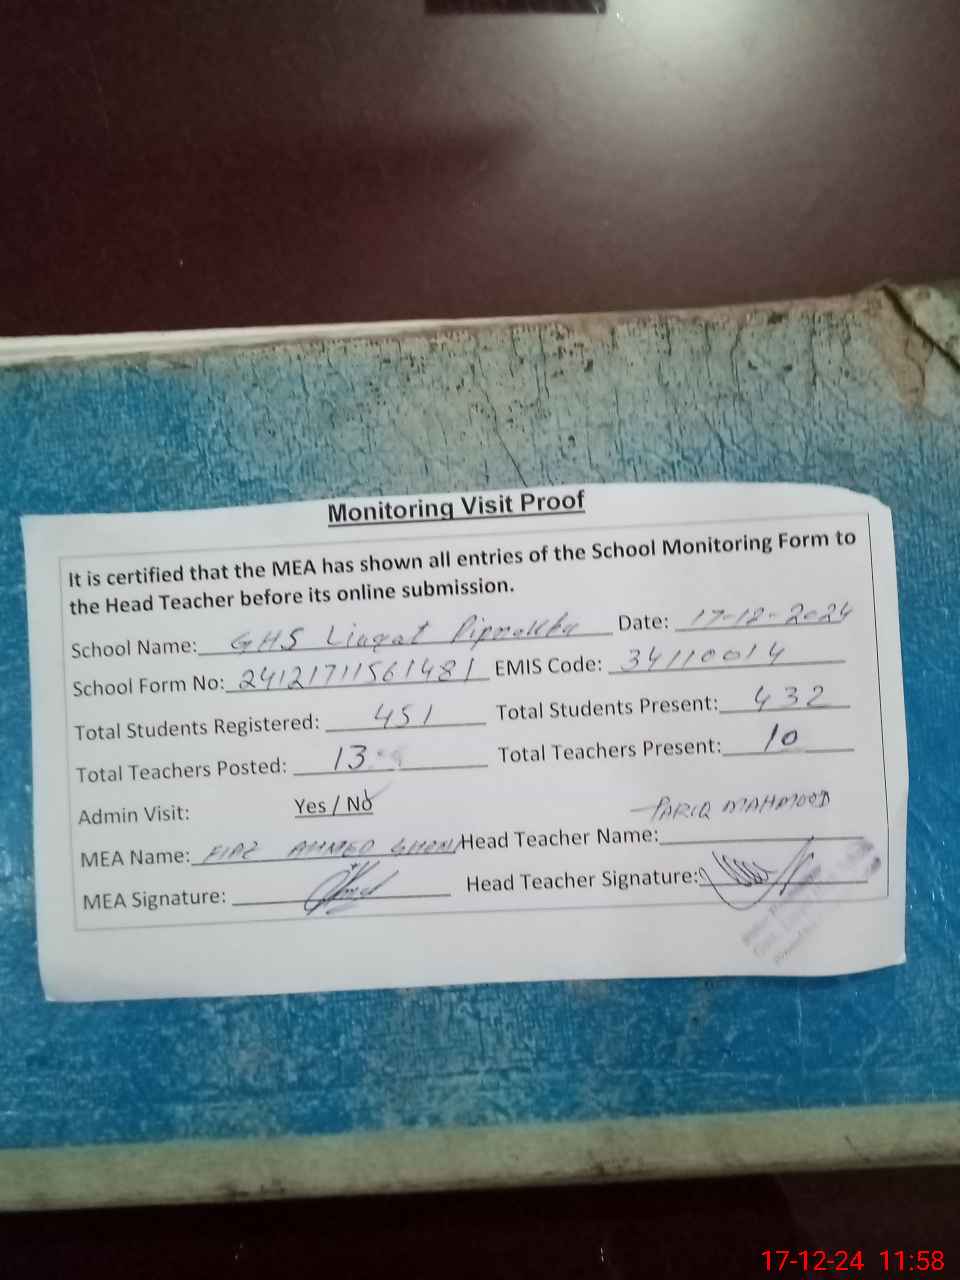 Monitoring Visit Proof
It is certified that the MEA has shown all entries of the School Monitoring Form to
the Head Teacher before its online submission.
School Name: GHS Liaqat Date: 17-12-2024
School Form No: 24121711561481 EMIS Code: 34110014
Total Students Registered: 451 Total Students Present: 432
Total Teachers Posted: 13 Total Teachers Present: 10
Admin Visit: Yes / No
TARIQ MAHMOOD
MEA Name: AHMED Head Teacher Name:
MEA Signature: Head Teacher Signature:
17-12-24 11:58